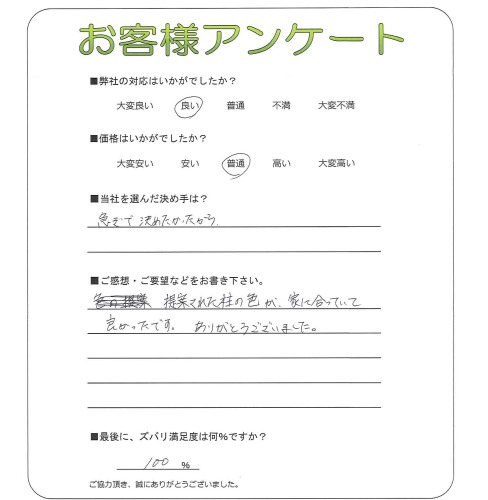 お客様アンケート
■弊社の対応はいかがでしたか?
大変良い 良い 普通 不満 大変不満
■価格はいかがでしたか?
大変安い 安い 普通 高い 大変高い
■当社を選んだ決め手は?
急ぎで決めたかったから。
■ご感想・ご要望などをお書き下さい。
提案された柱の色が、家に合っていて
良かったです。 ありがとうございました。
■最後に、ズバリ満足度は何%ですか?
100 %
ご協力頂き、誠にありがとうございました。